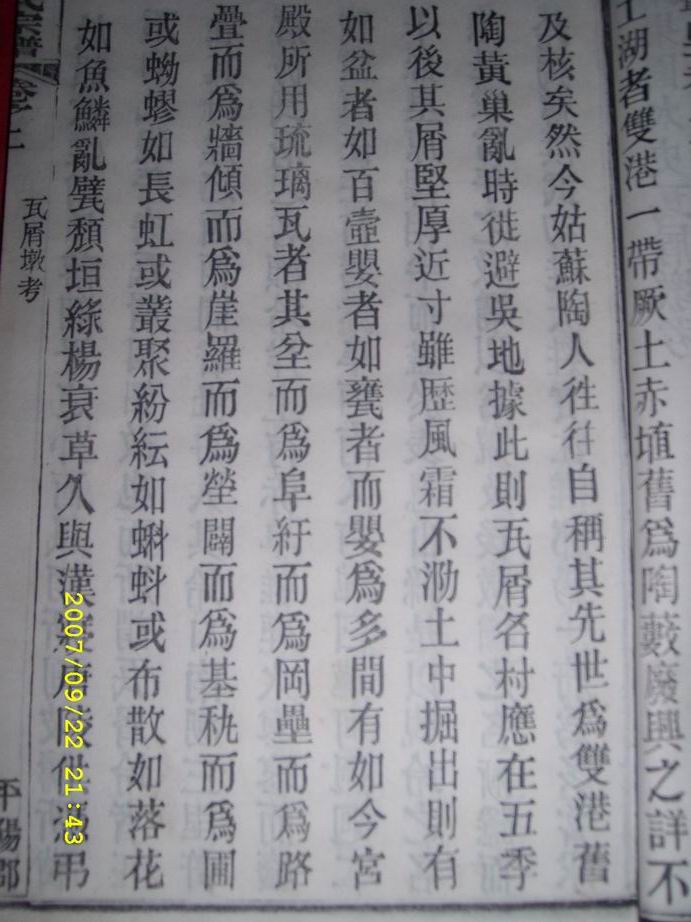 土湖者雙港一帶厥土赤埴舊爲陶藪廢興之詳不
及核矣然今姑蘇陶人徃徃自稱其先世爲雙港舊
陶黃巢亂時徙避吳地據此則瓦屑名村應在五季
以後其屑堅厚近寸雖歴風霜不泐土中掘出則有
如盆者如百壺罌者如甕者而罌爲多間有如今宮
殿所用琉璃瓦者其坌而爲阜紆而爲岡壘而爲路
疊而爲牆傾而爲崖羅而爲塋闢而爲基秇而爲圃
或蚴蟉如長虹或叢聚紛紜如蝌蚪或布散如落花
如魚鱗亂甓頹垣綠楊衰草久與漢寢唐陵供憑弔
宗譜
卷之
瓦屑墩考
平陽郡
2007/09/22 21:43